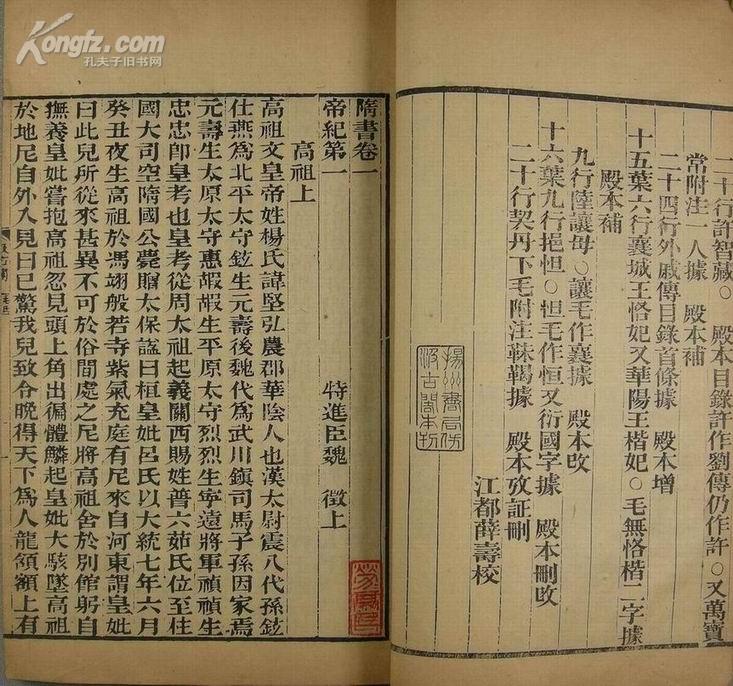 Kongfz.com
孔夫子旧书网
二十行許智藏○　殿本目錄許作劉傳仍作許○又萬寶
常附注一人據　殿本補
二十四行外戚傳目錄首條據　殿本增
十五葉六行襄城王恪妃又華陽王楷妃○毛無恪楷二字據
殿本補
九行陸讓母○讓毛作襄據　殿本改
十六葉九行挹怛○怛毛作恒又衍國字據　殿本刪改
二十行契丹下毛附注靺鞨據　殿本攷証刪
江都薛壽校
揚州書局仿
汲古閣本刊
隋書卷一
帝紀第一　特進臣魏　徵上
高祖上
高祖文皇帝姓楊氏諱堅弘農郡華陰人也漢太尉震八代孫鉉
仕燕爲北平太守鉉生元壽後魏代爲武川鎮司馬子孫因家焉
元壽生太原太守惠嘏嘏生平原太守烈烈生寧遠將軍禎禎生
忠忠卽皇考也皇考從周太祖起義關西賜姓普六茹氏位至柱
國大司空隋國公薨贈太保諡曰桓皇妣呂氏以大統七年六月
癸丑夜生高祖於馮翊般若寺紫氣充庭有尼來自河東謂皇妣
曰此兒所從來甚異不可於俗閒處之尼將高祖舍於別館躬自
撫養皇妣嘗抱高祖忽見頭上角出徧體鱗起皇妣大駭墜高祖
於地尼自外入見曰已驚我兒致令晚得天下爲人龍頷額上有